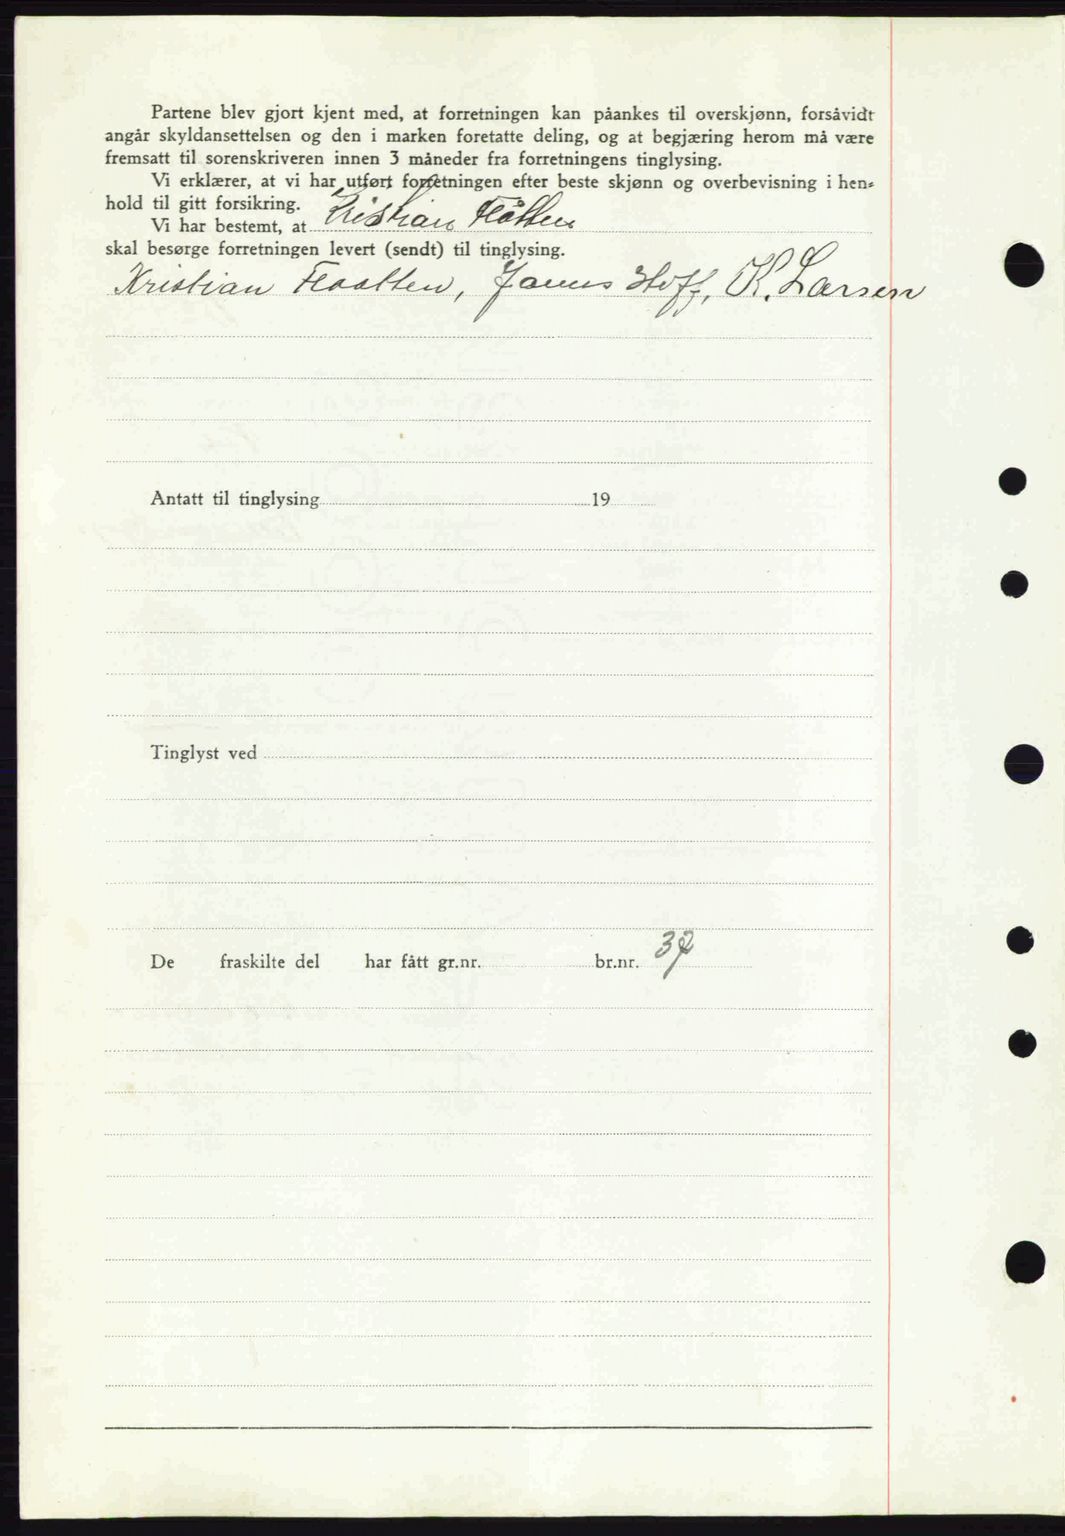 Partene blev gjort kjent med, at forretningen kan påankes til overskjønn, forsåvidt
angår skyldansettelsen og den i marken foretatte deling, og at begjæring herom må være
fremsatt til sorenskriveren innen 3 måneder fra forretningens tinglysing.
Vi erklærer, at vi har utført forretningen efter beste skjønn og overbevisning i hen-
hold til gitt forsikring.
Vi har bestemt, at Kristian Flåtten
skal besørge forretningen levert (sendt) til tinglysing.
Kristian Flaatten, Hoff, K. Larsen
Antatt til tinglysing 19
Tinglyst ved
De fraskilte del har fått gr.nr. br.nr.